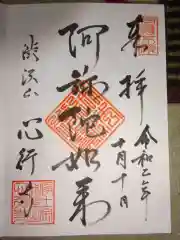 奉拝
令和二年
十月十日
阿弥陀如来
渋沢山
心行寺